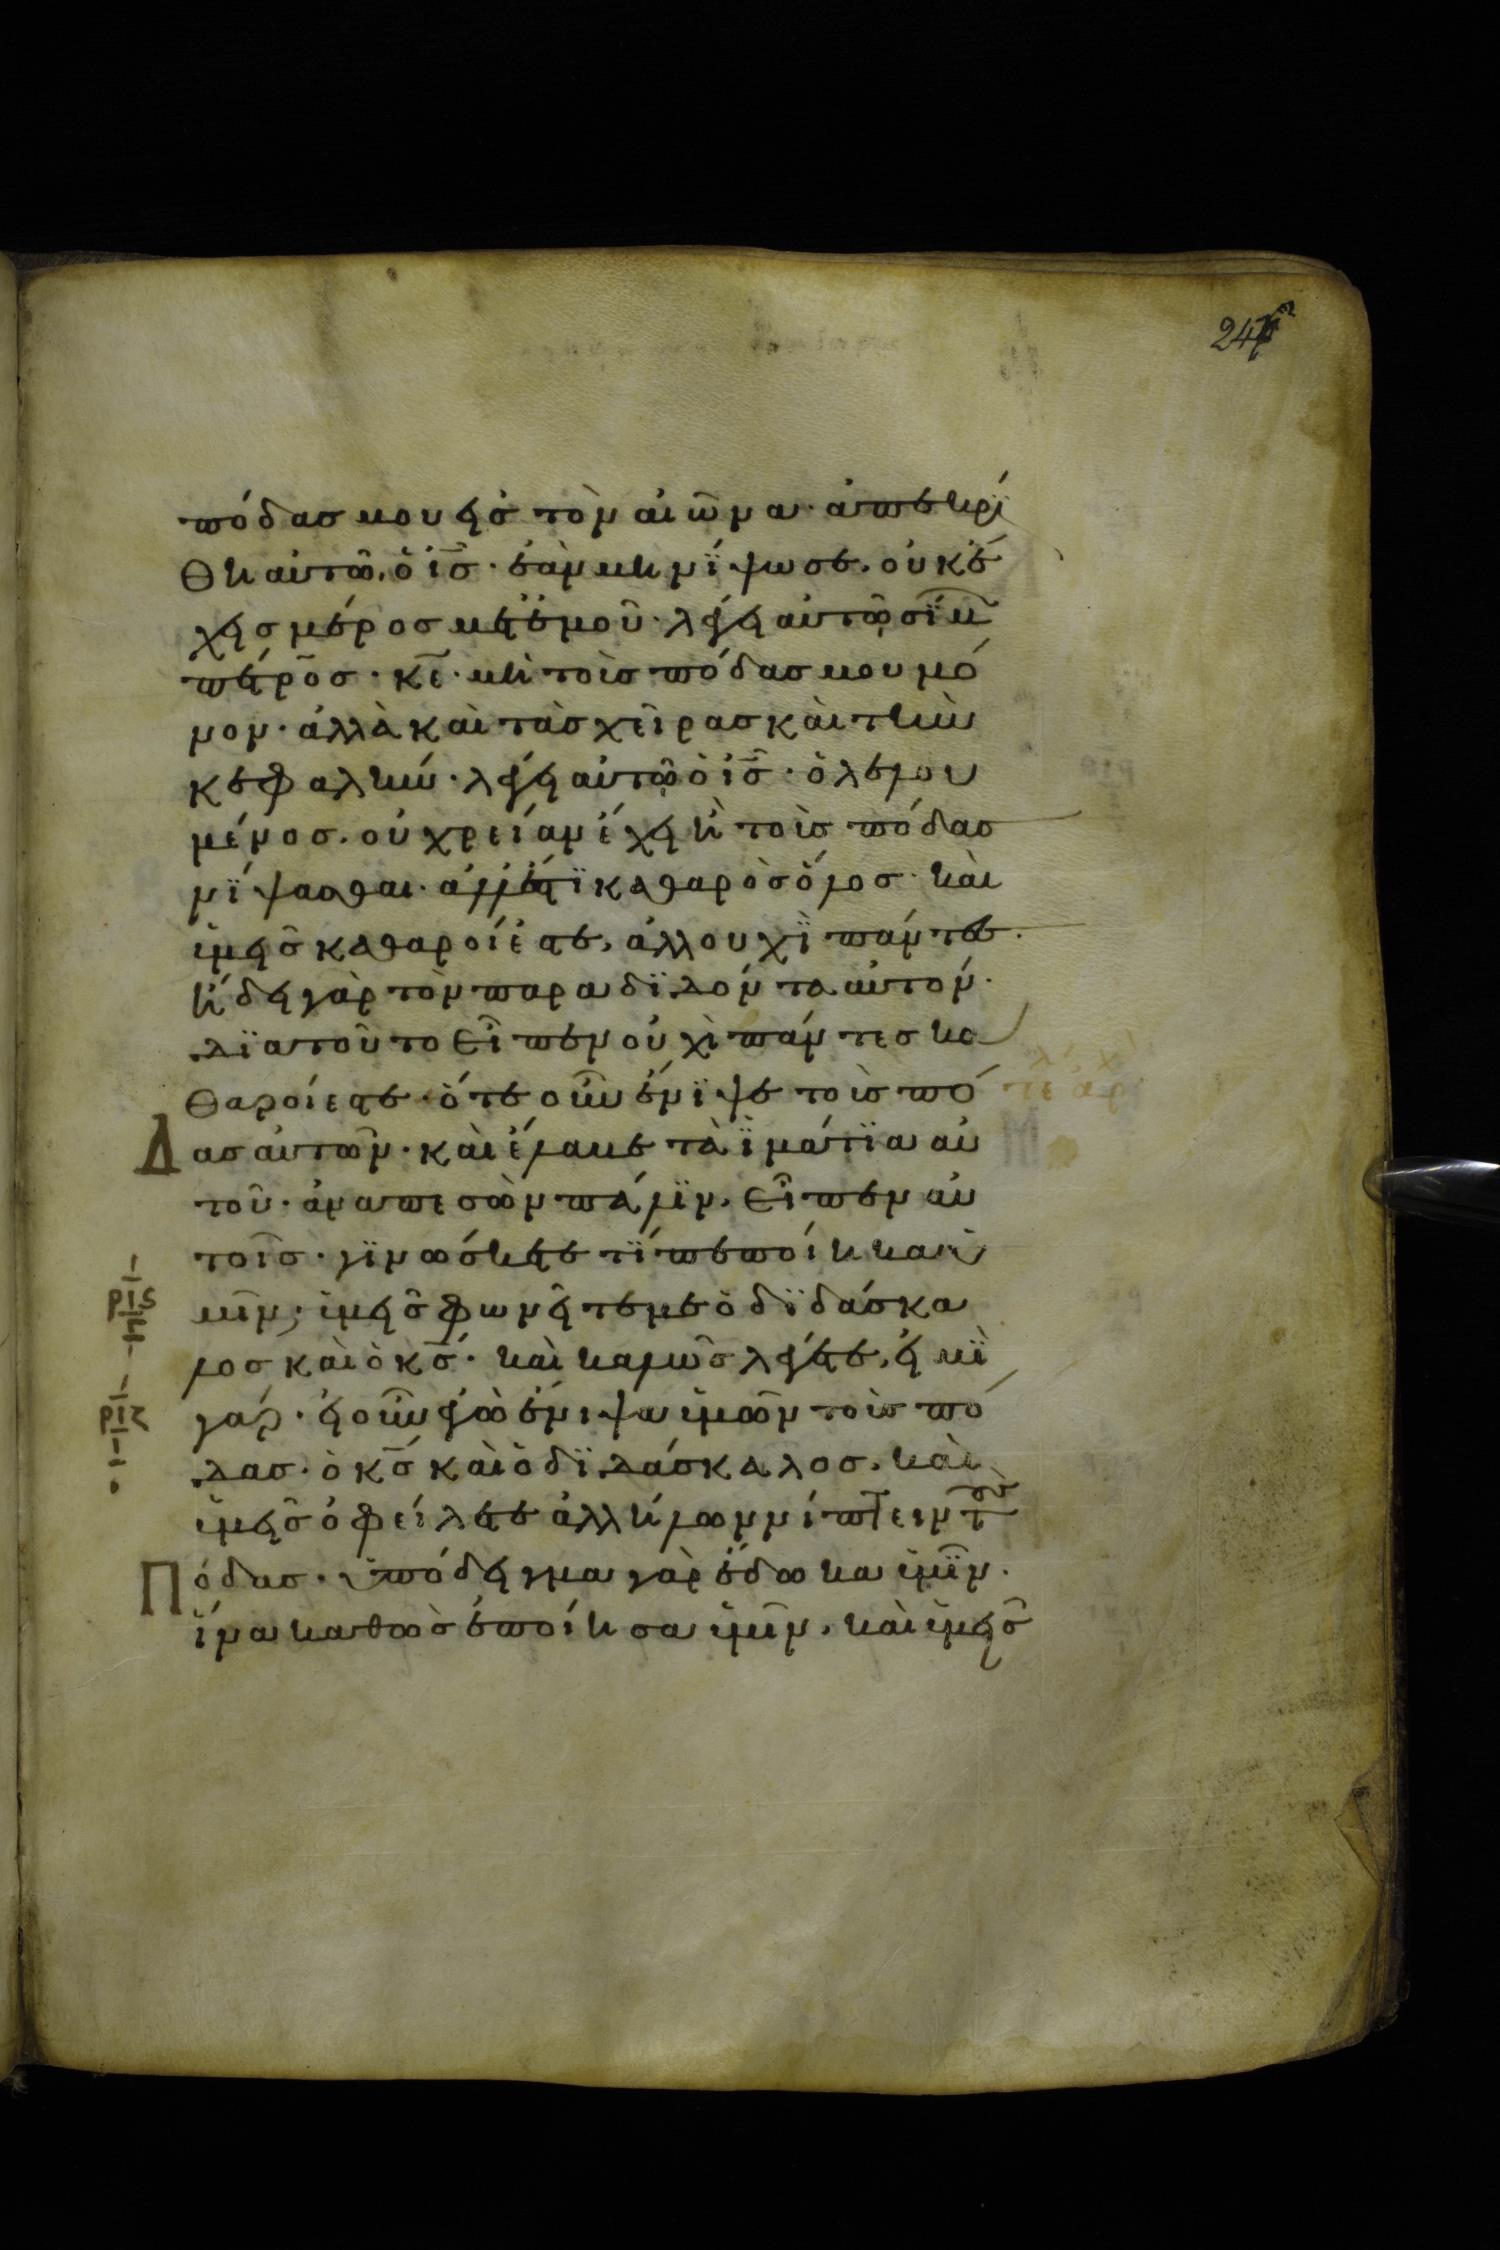 πόδασ μου εἰσ τὸν αἰῶνα· ἀπεκρί
θη αὐτῶ, ὁ ι̅σ̅· ἐὰν μὴ νίψω σε, οὐκ ἔ
χεισ μέροσ μετ ἐμοῦ· λέγει αὐτῶ σίμ
πέτροσ· κ̅ε̅· μὴ τοὺσ πόδασ μου μό
νον· ἀλλὰ καὶ τὰσ χεῖρασ καὶ τὴν
κεφαλήν· λέγει αὐτῶ ὁ ι̅σ̅· ὁ λελου
μένοσ, οὐ χρείαν ἔχει ἢ τοὺσ πόδασ
νίψασθαι· ἀλλ ἔστϊ καθαρὸσ ὅλοσ· καὶ
ὑμεῖσ καθαροί ἐστε, ἀλλ οὐχὶ πάντεσ.
ἤδει γὰρ τὸν παραδϊδόντα αὐτόν·
δϊατοῦτο εἶπεν οὐχὶ πάντεσ κα
θαροί εστε· ὅτε οὖν ἔνιψε τοὺσ πό
Δασ αὐτῶν· καὶ ἔλαβε τὰ ἱμάτϊα αὐ
τοῦ· ἀναπεσὼν πάλϊν, εἶπεν αὐ
τοῖσ· γϊνώσκετε τί πεποίηκα ὑ
ριϛ μῖν; ὑμεῖσ φωνεῖτε με ὁ δϊδάσκα
λοσ καὶ ὁ κ̅σ̅· καὶ καλῶσ λέγετε, εἰμὶ
ριζ γάρ· εἰ οὖν ἐγὼ ἔνιψα ὑμῶν τοὺσ πό
δασ· ὁ κ̅σ̅ καὶ ὁ δϊδάσκαλοσ, καὶ
ὑμεῖσ ὀφείλετε ἀλλήλων νίπτειν τοὺσ
Πόδασ· ὑπόδειγμα γὰρ ἔδωκα ὑμῖν·
ἵνα καθὼσ ἐποίησα ὑμῖν, καὶ ὑμεῖσ